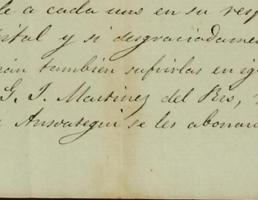 le a cada uno en su resp
ital y si desgraciadame
rán también sufrirlas en ig
G. J. Martinez del Rio,
Ansoategui se les abonar